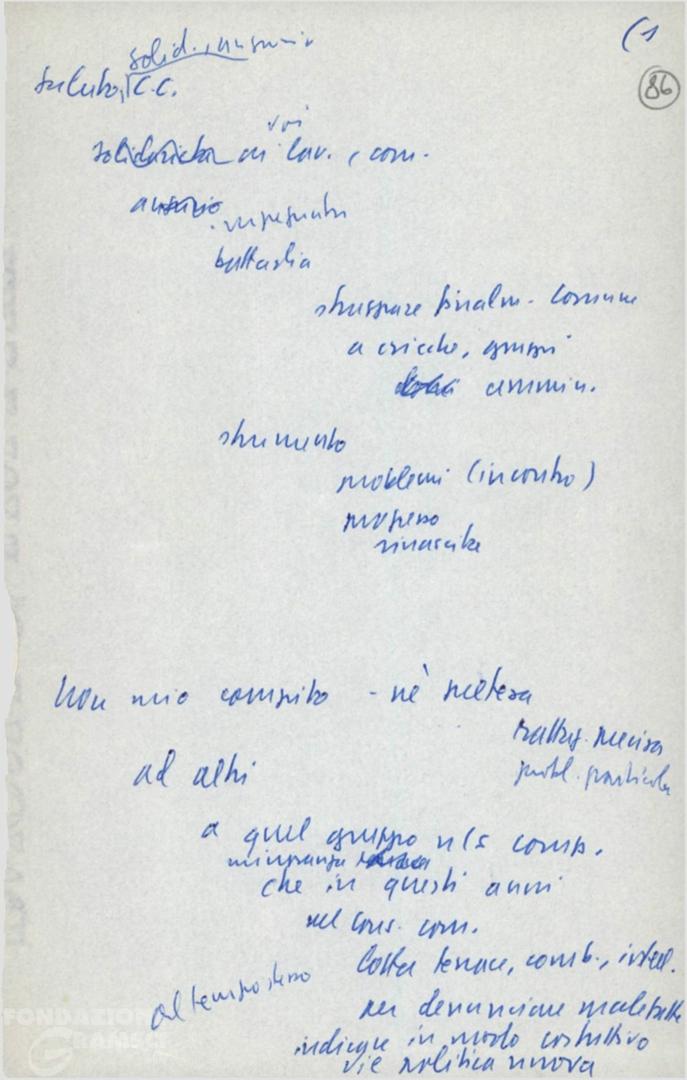 (1
86
solid., augurio
saluto, C.C.
voi
solidarietà ai lav., com.
augurio
impegnata
battaglia
strappare finalm. comune
a cricche, gruppi
ammin.
strumento
problemi (incontro)
progresso
rinascita
Non mio compito - nè pretesa
trattaz. precisa
ad altri
probl. particola
a quel gruppo
comp.
minoranza
che in questi anni
nel cons. com.
lotta tenace, comb., intell.
al tempo stesso
per denunciare malefatte
indicare in modo costruttivo
vie politica nuova
FONDAZIONE
GRAMSCI